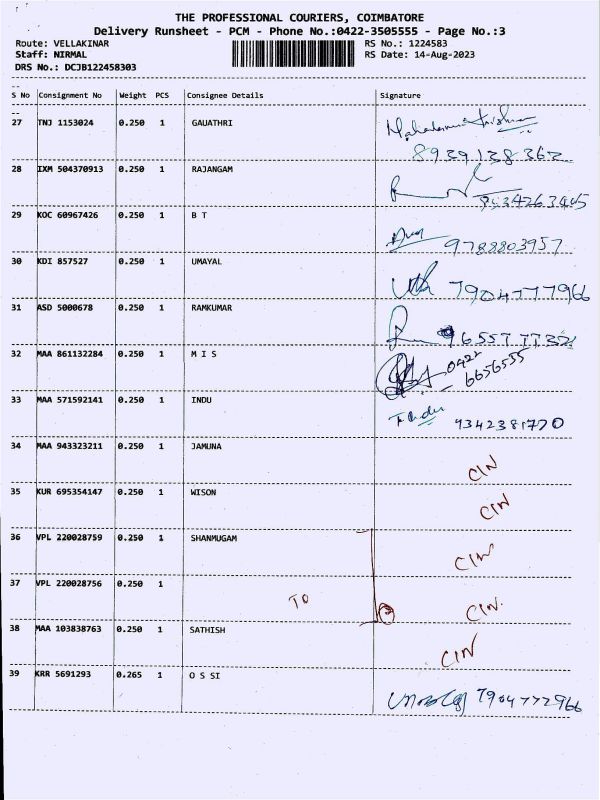 THE PROFESSIONAL COURIERS, COIMBATORE
Delivery Runsheet - PCM - Phone No.:0422-3505555 - Page No.:3
Route: VELLAKINAR RS No.: 1224583
Staff: NIRMAL RS Date: 14-Aug-2023
DRS No.: DCJB122458303
S No Consignment No Weight PCS Consignee Details Signature
27 TNJ 1153024 0.250 1 GAUATHRI
8939138362
28 IXM 504370913 0.250 1 RAJANGAM
29 KOC 60967426 0.250 1 B T
9788803957
30 KDI 857527 0.250 1 UMAYAL
7904777966
31 ASD 5000678 0.250 1 RAMKUMAR
32 MAA 861132284 0.250 1 M I S
0422
6656555
33 MAA 571592141 0.250 1 INDU
Indu 9342381770
34 MAA 943323211 0.250 1 JAMUNA
CIN
35 KUR 695354147 0.250 1 WISON
CIN
36 VPL 220028759 0.250 1 SHANMUGAM
CIN
37 VPL 220028756 0.250 1
TO CIN
38 MAA 103838763 0.250 1 SATHISH
CIN
39 KRR 5691293 0.265 1 O S SI
7904772966